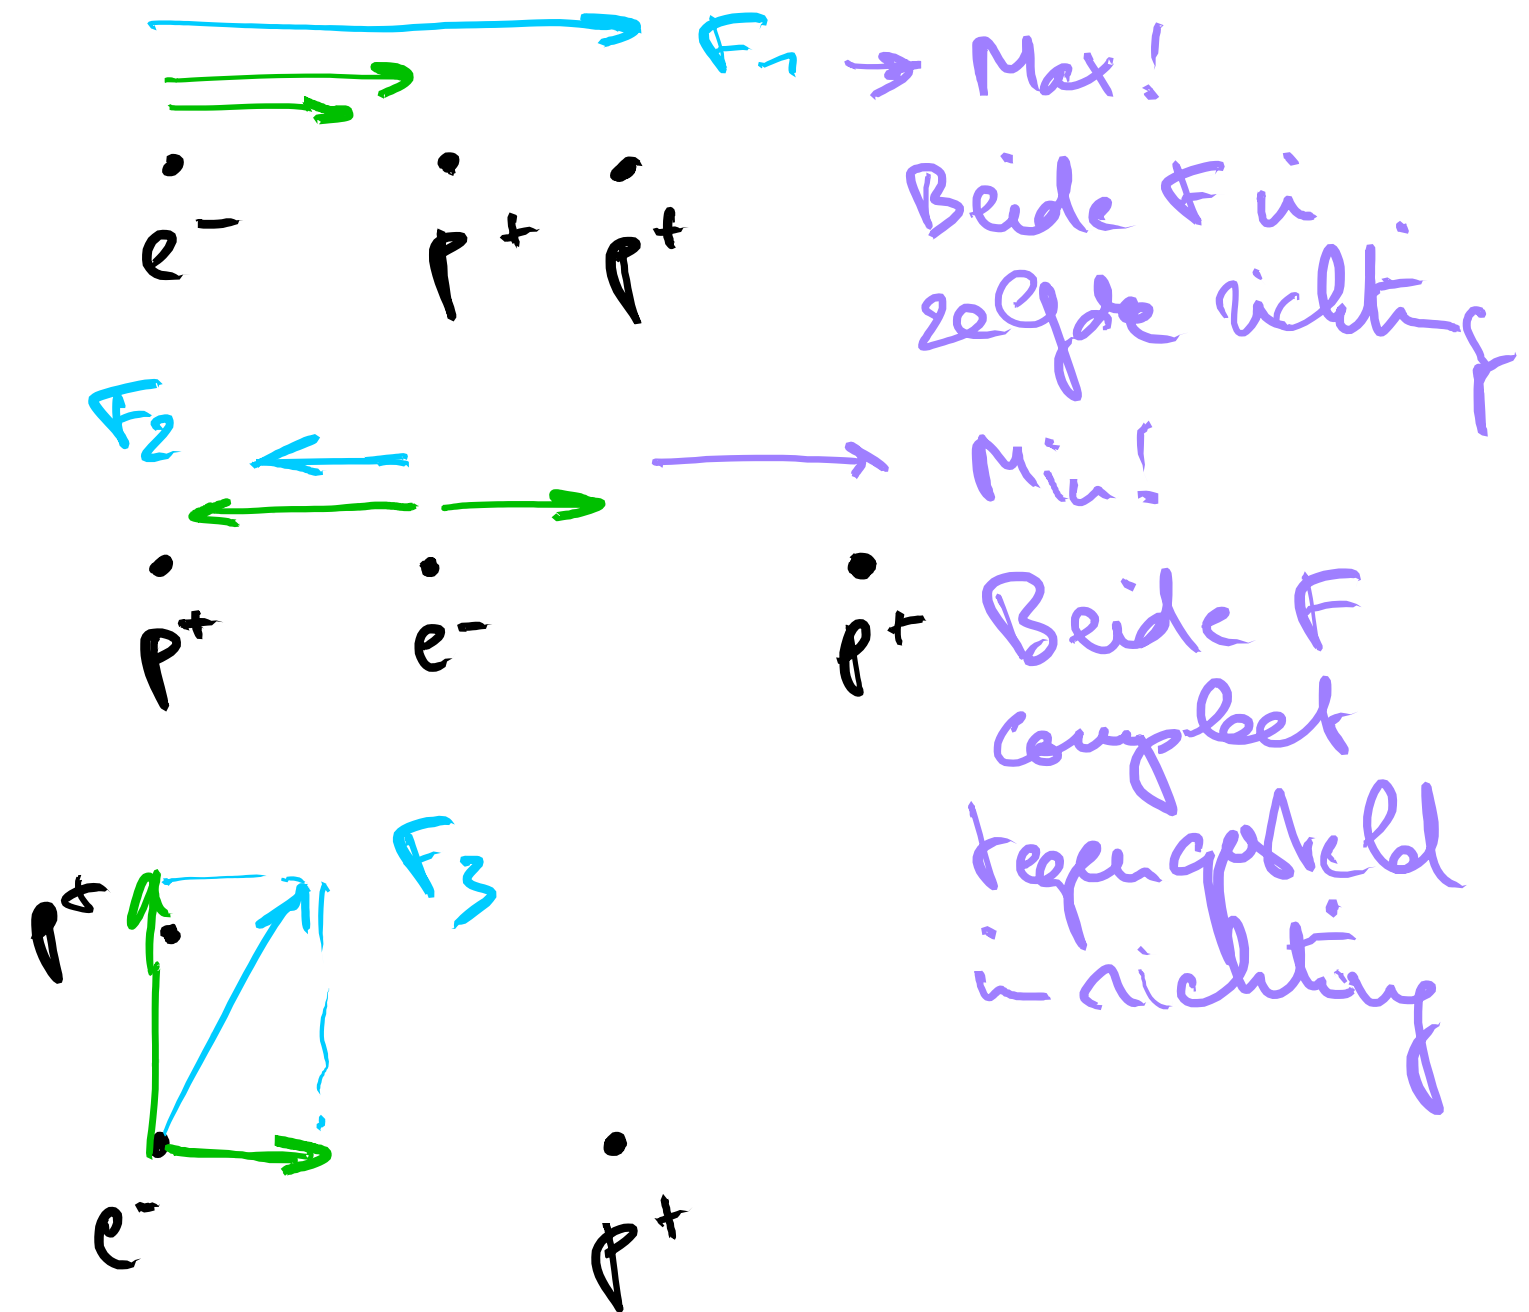 F1 → Max!
e⁻ p⁺ p⁺
Beide F in
zelfde richting
F2
→ Min!
p⁺ e⁻ p⁺
Beide F
compleet
tegengesteld
in richting
F3
p⁺
e⁻
p⁺